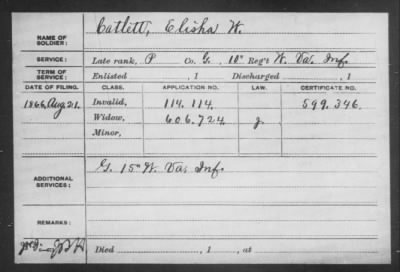 NAME OF SOLDIER: Catlett, Elisha W.
SERVICE: Late rank, P Co. G, 10" Reg't W. Va. Inf.
TERM OF SERVICE: Enlisted , 1 Discharged , 1
DATE OF FILING. CLASS. APPLICATION NO. LAW. CERTIFICATE NO.
1866, Aug 21. Invalid, 114.114. 599.346.
Widow, 606.724. J.
Minor,
ADDITIONAL SERVICES: G. 15" W. Va. Inf.
REMARKS:
Died , 1 , at